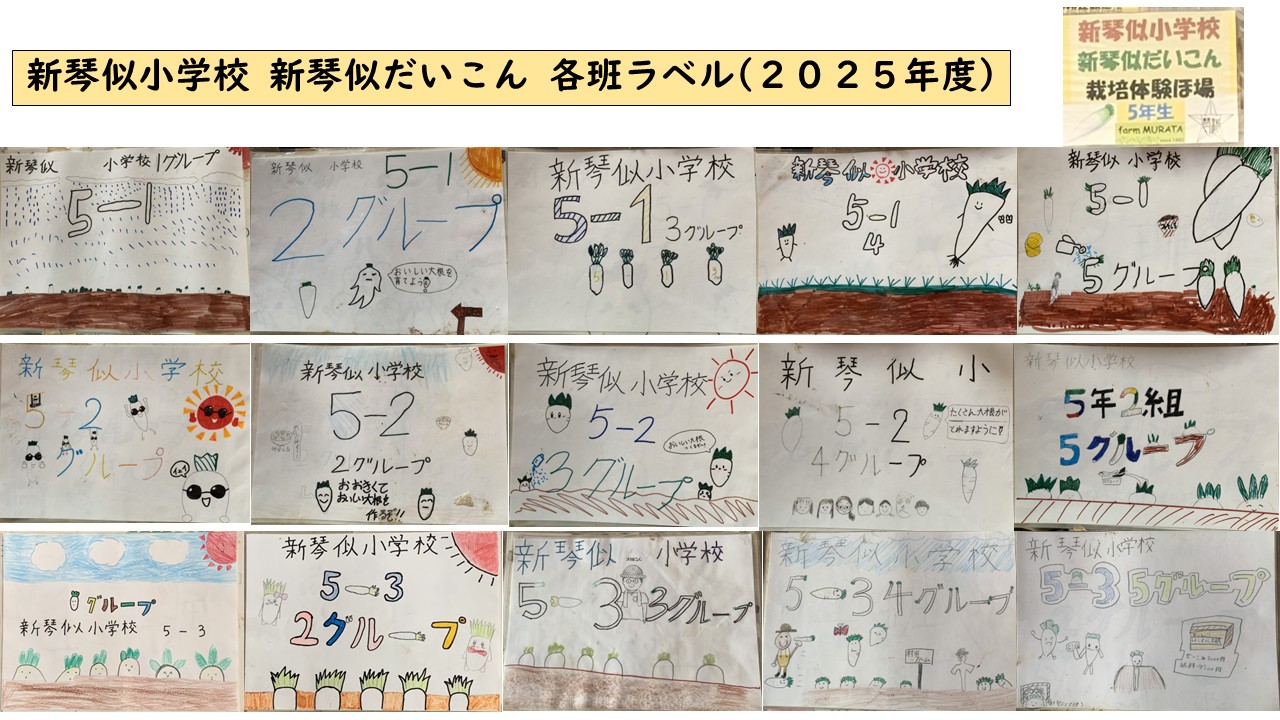 新琴似小学校 新琴似だいこん 各班ラベル(2025年度)
新琴似小学校
新琴似だいこん
栽培体験ほ場
5年生
farm MURATA
新琴似 小学校 1グループ
5-1
新琴似 小学校 5-1
2グループ
おいしい大根を
育てよう
新琴似小学校
5-1 3グループ
新琴似小学校
5-1
4
新琴似 小学校
5-1
5グループ
新琴似小学校
5-2
グループ
新琴似小学校
5-2
2グループ
おおきくて
おいしい大根を
作るぞ!!
新琴似小学校
5-2
おいしい大根
3グループ
新琴似小
5-2
たくさん大根が
とれますように
4グループ
新琴似小学校
5年2組
5グループ
グループ
新琴似小学校 5-3
新琴似小学校
5-3
2グループ
新琴似 小学校
5-3 3グループ
新琴似小学校
5-3 4グループ
新琴似小学校
5-3 5グループ